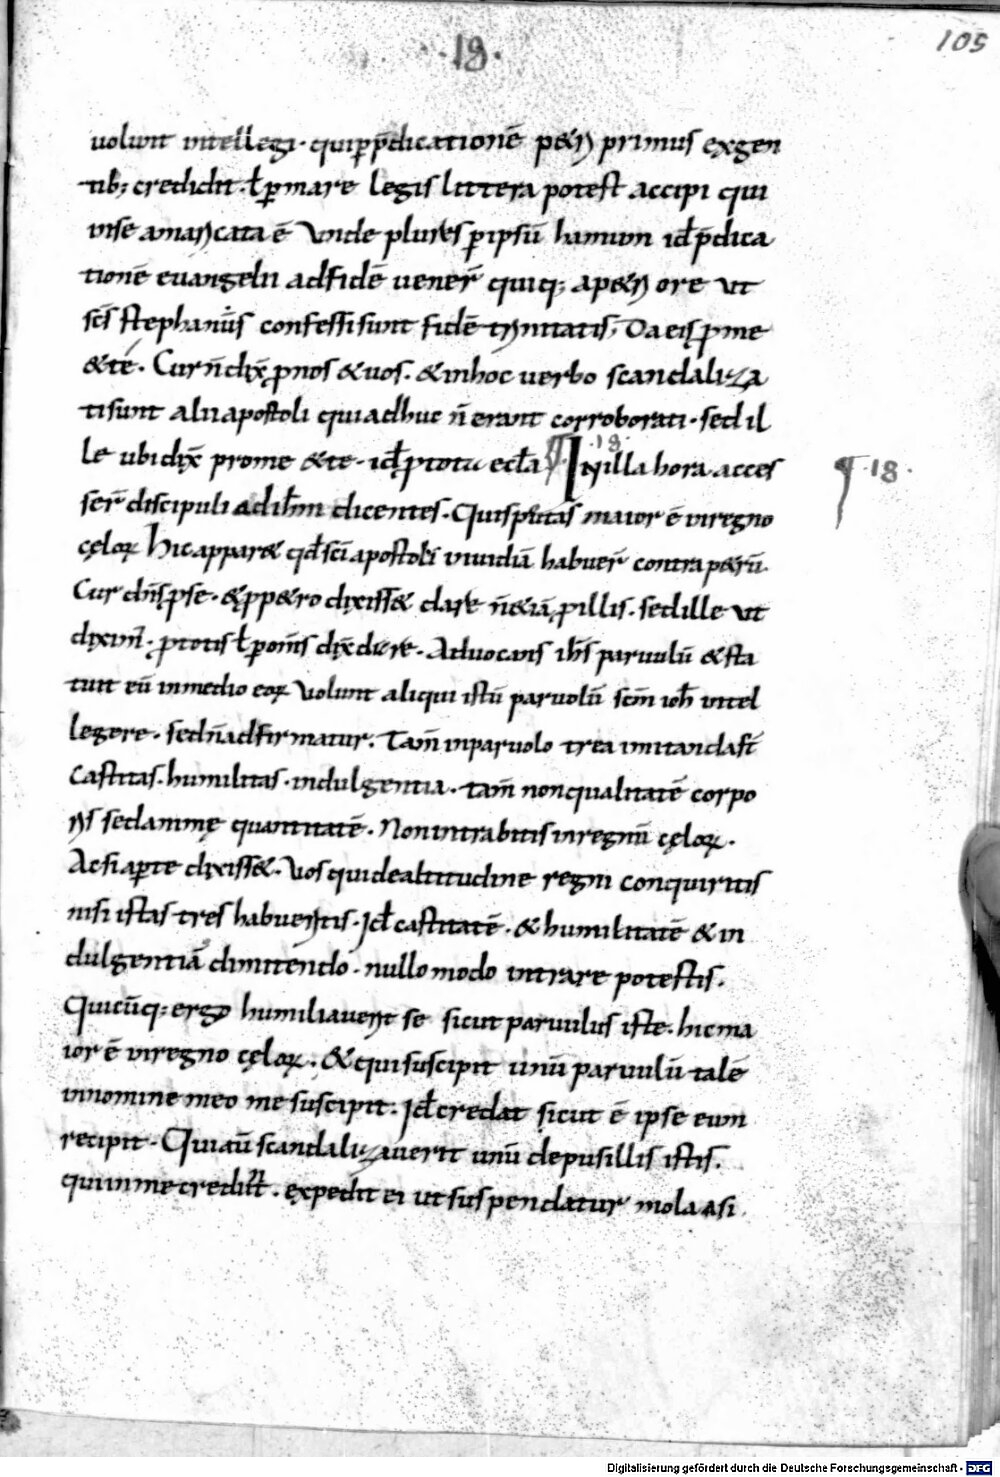 .18.
105
uolunt intellegi · quip p̄dicationē petri primus exgen
tib; credidit · ł p mare legis littera potest accipi qui
uise amaricata ē Unde plures p ipsū hamum id ē p̄dica
tionē euangelii adfidē uener̄ quiq; apetri ore ut
sc̄s stephanus confessi sunt fidē trinitatis; Da eis pme
&te · Cur n̄ dix̄ pnos &uos · &inhoc uerbo scandaliza
ti sunt alii apostoli qui adhuc n̄ erant corroborati · sed il
le ubi dix̄ prome &te · id ē ptotu eccła .18. In illa hora acces
¶ .18.
ser̄ discipuli ad ih̄m dicentes · Quis putas maior ē inregno
cęlorꝝ Hic apparet qđ sc̄i apostoli inuidiā habuer̄ contra petrū
Cur dn̄s pse · &p petro dixiss& dare n̄ &iā pillis · sed ille ut
diximꝰ · ptotis ł p om̄s dix̄ dare · Aduocans ih̄s paruulū &sta
tuit eū inmedio eorꝝ Uolunt aliqui istū paruolū sc̄m ioh̄ intel
legere · sed n̄ adfirmatur · Tam̄ inparuolo trea imitanda st̄
castitas · humilitas · indulgentia · tam̄ non qualitatē corpo
ris sed animę quantitatē · Non intrabitis inregnū cęlorꝝ ·
Ac si apte dixiss& · Uos qui dealtitudine regni conquiritis
nisi istas tres habueritis · Id ē castitatē · & humilitatē & in
dulgentiā dimitendo · nullo modo intrare potestis ·
Quicūq; ergo humiliauerit se sicut paruulus iste · hic ma
ior ē inregno cęlorꝝ · & qui suscipit unū paruulū talē
innomine meo me suscipit · Id ē credat sicut ē ipse eum
recipit · Qui aū scandalizauerit unū de pusillis istis ·
qui inme credunt · expedit ei ut suspendatur mola asi
Digitalisierung gefördert durch die Deutsche Forschungsgemeinschaft - DFG